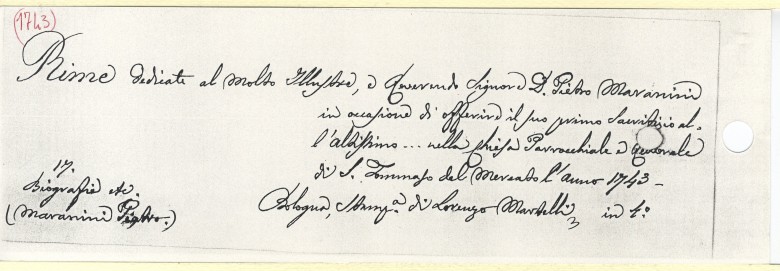 (1743)
Rime dedicate al Molto Illustre, e Reverendo Signore D. Pietro Maranini
in occasione di offerire il suo primo Sacrifizio al-
l'altissimo... nella chiesa Parrocchiale e Generale
di S. Tommaso del Mercato l'anno 1743 -
Bologna, Stampa di Lorenzo Martelli, in 4°
17.
Biografie etc.
(Maranini Pietro.)